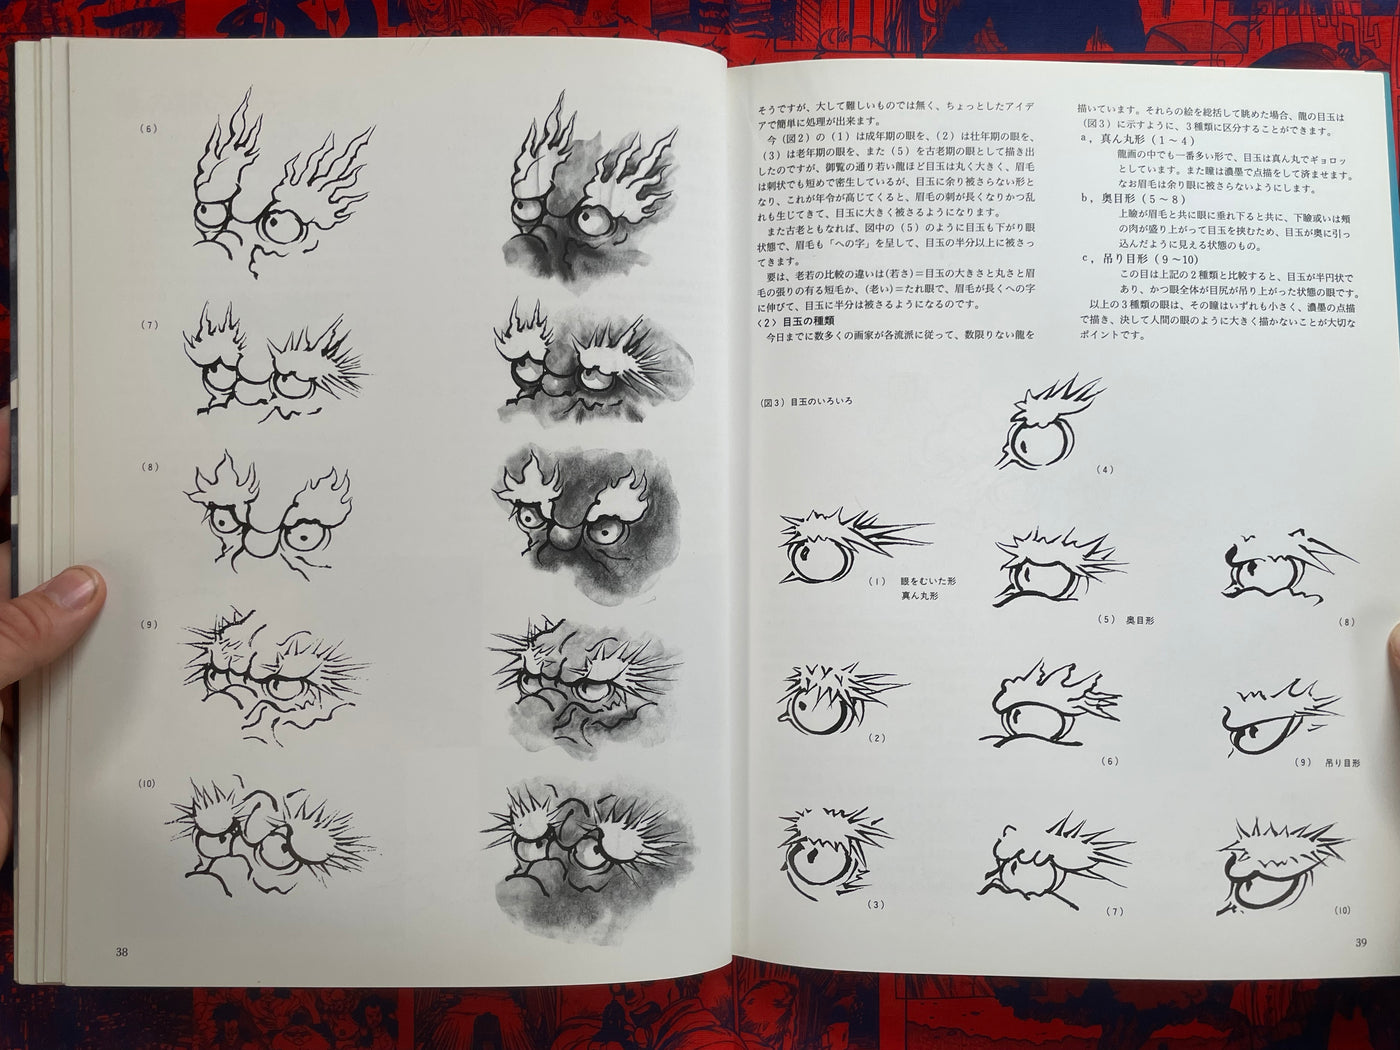 (6)
(7)
(8)
(9)
(10)
38
そうですが、大して難しいものでは無く、ちょっとしたアイデ
アで簡単に処理が出来ます。
今(図2)の(1)は成年期の眼を、(2)は壮年期の眼を、
(3)は老年期の眼を、また(5)を古老期の眼として描き出
したのですが、御覧の通り若い龍ほど目玉は丸く大きく、眉毛
は刺状でも短めで密生しているが、目玉に余り被さらない形と
なり、これが年令が高じてくると、眉毛の刺が長くなりかつ乱
れも生じてきて、目玉に大きく被さるようになります。
また古老ともなれば、図中の(5)のように目玉も下がり眼
状態で、眉毛も「への字」を呈して、目玉の半分以上に被さっ
てきます。
要は、老若の比較の違いは(若さ)=目玉の大きさと丸さと眉
毛の張りの有る短毛か、(老い)=たれ眼で、眉毛が長くへの字
に伸びて、目玉に半分は被さるようになるのです。
(2)目玉の種類
今日までに数多くの画家が各流派に従って、数限りない龍を
描いています。それらの絵を総括して眺めた場合、龍の目玉は
(図3)に示すように、3種類に区分することができます。
a，真ん丸形(1～4)
龍画の中でも一番多い形で、目玉は真ん丸でギョロッ
としています。また瞳は濃墨で点描をして済ませます。
なお眉毛は余り眼に被さらないようにします。
b，奥目形(5～8)
上瞼が眉毛と共に眼に垂れ下ると共に、下瞼或いは頬
の肉が盛り上がって目玉を挟むため、目玉が奥に引っ
込んだように見える状態のもの。
c，吊り目形(9～10)
この目は上記の2種類と比較すると、目玉が半円状で
あり、かつ眼全体が目尻が吊り上がった状態の眼です。
以上の3種類の眼は、その瞳はいずれも小さく、濃墨の点描
で描き、決して人間の眼のように大きく描かないことが大切な
ポイントです。
(図3)目玉のいろいろ
(4)
(1) 眼をむいた形
真ん丸形
(5) 奥目形
(8)
(2)
(6)
(9) 吊り目形
(3)
(7)
(10)
39